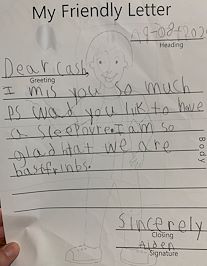 My Friendly Letter
9-08-202
Heading
Dear Cash,
Greeting
I mis you so much
ps wad you lik to have
a sleepovre. I am so
glad tat we are
bastfrinbs.
Body
Sincerely
Closing
Aiden
Signature